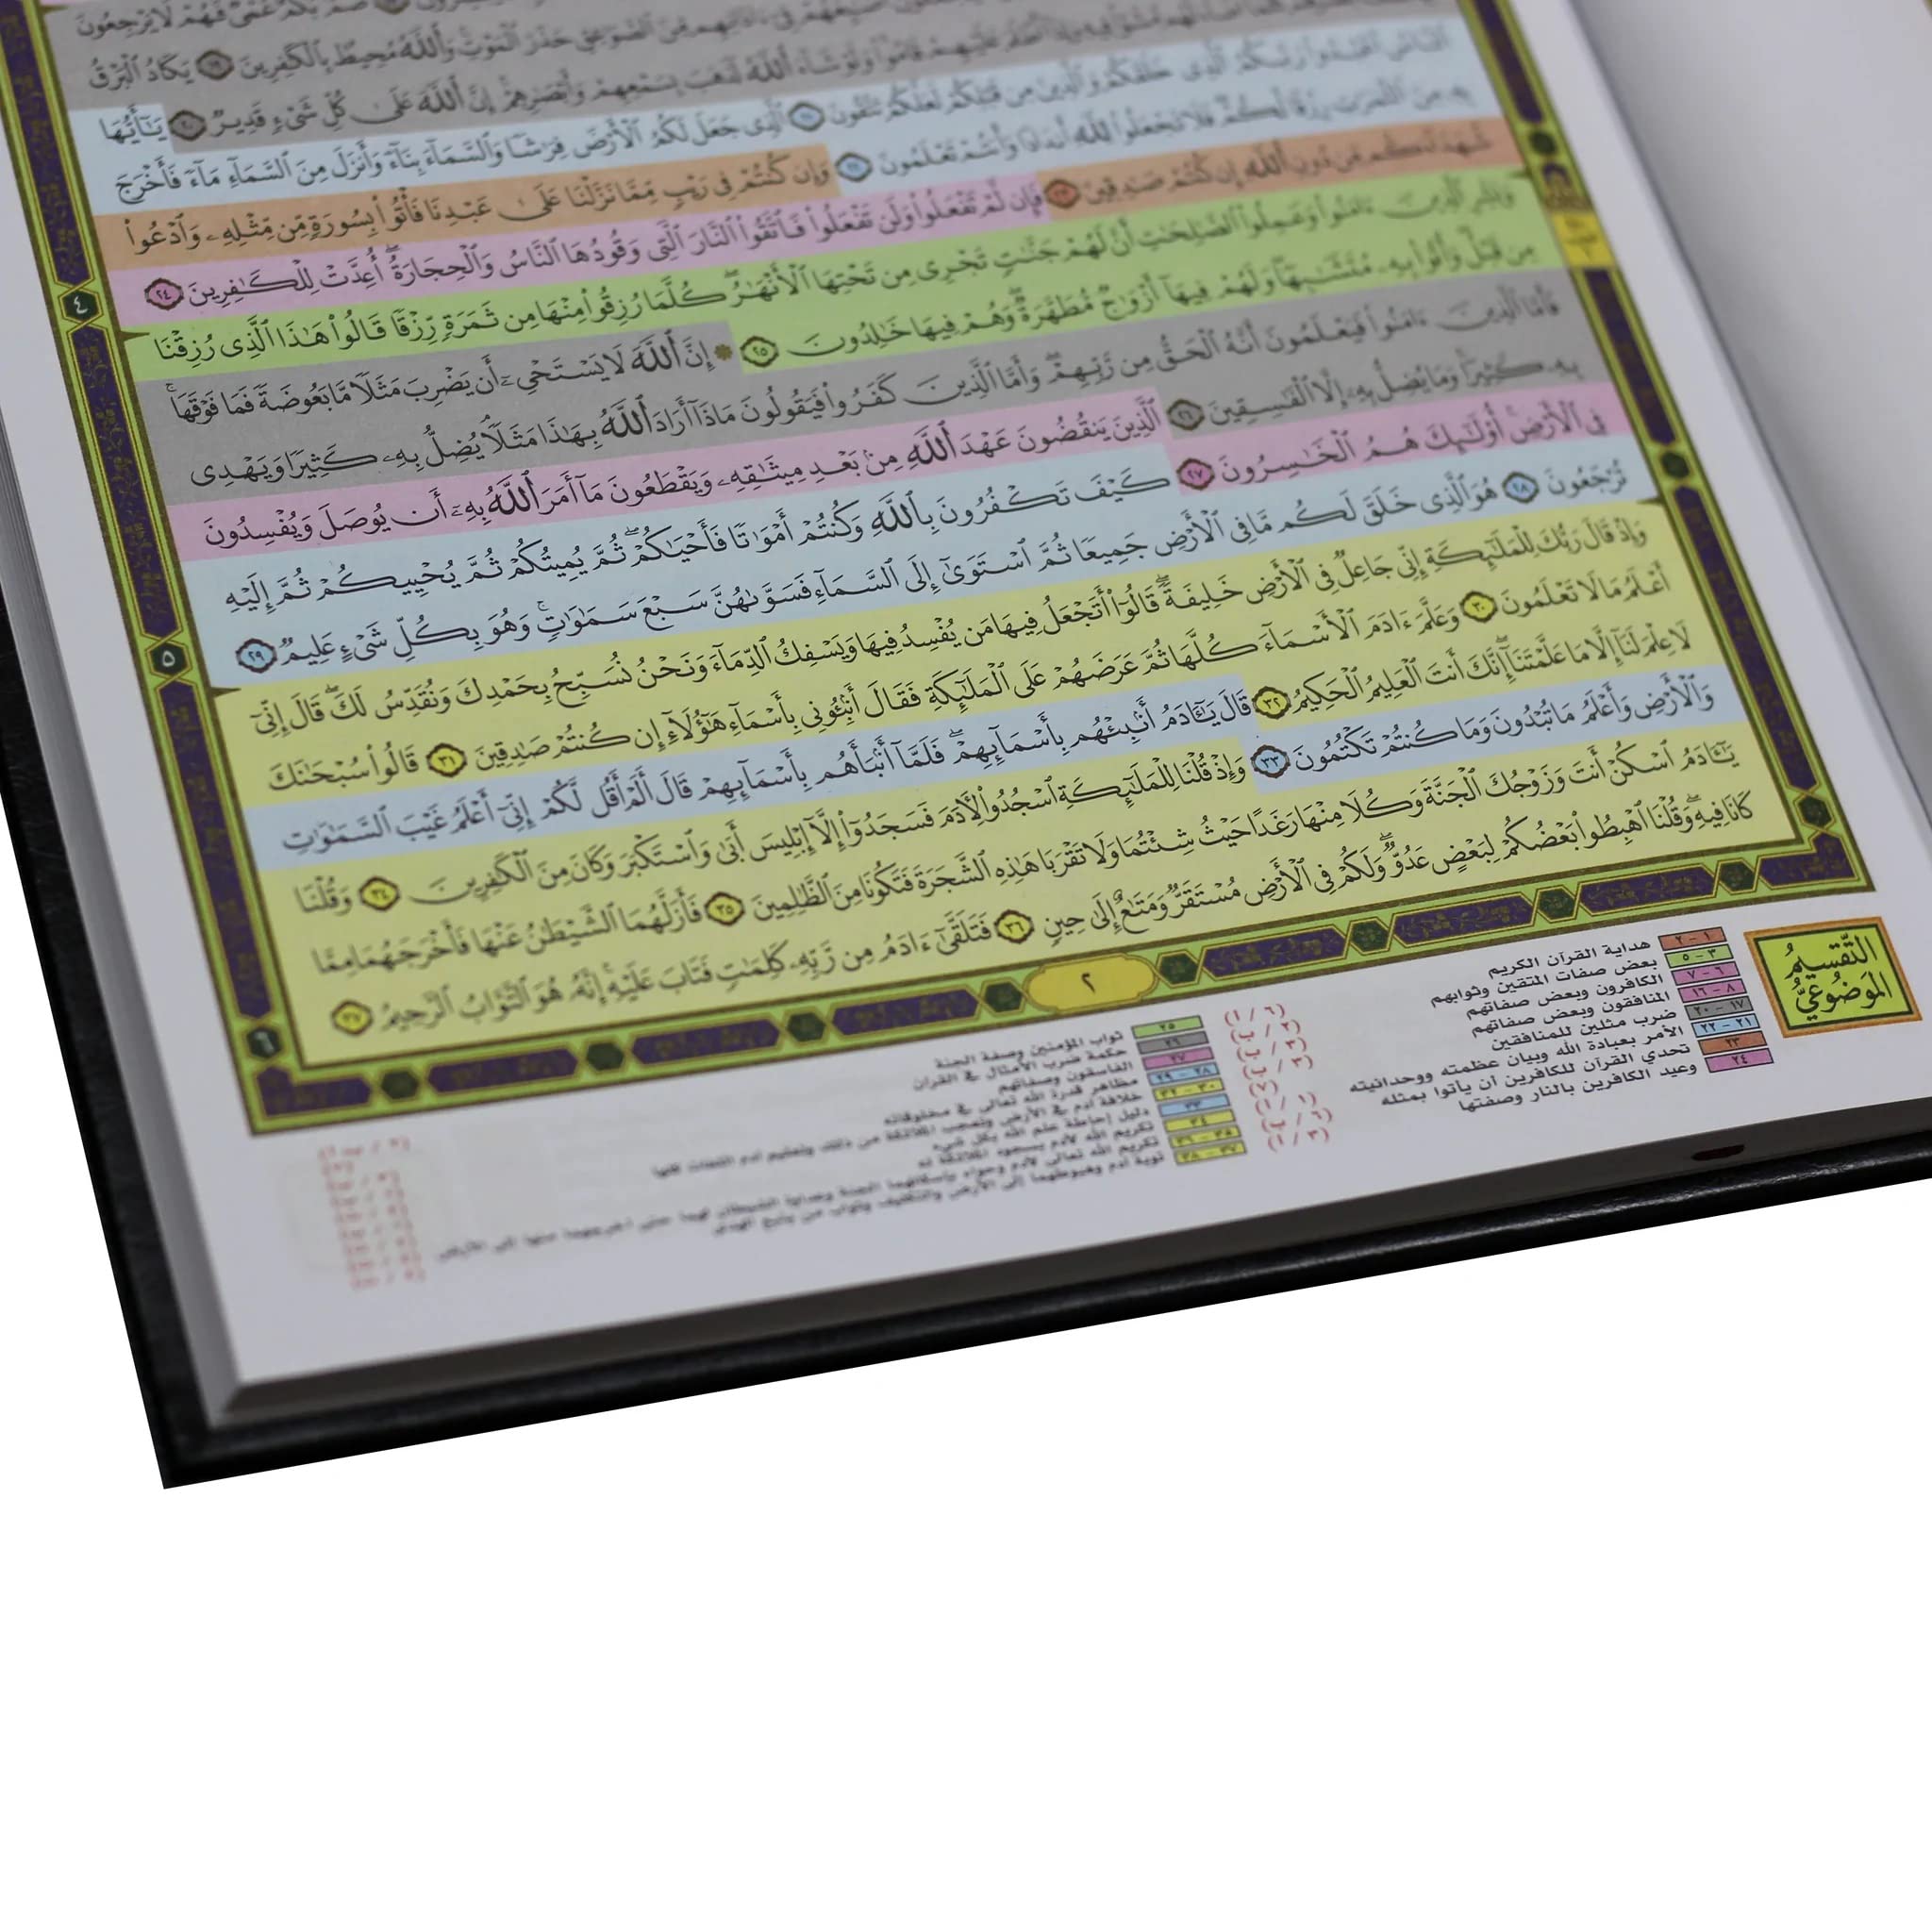 صُمٌّ بُكْمٌ عُمْيٌ فَهُمْ لَا يَرْجِعُونَ
ءَاذَانِهِم مِّنَ الصَّوَٰعِقِ حَذَرَ الْمَوْتِ وَاللَّهُ مُحِيطٌ بِالْكَٰفِرِينَ ١٩ يَكَادُ الْبَرْقُ
قَامُوا۟ وَلَوْ شَآءَ اللَّهُ لَذَهَبَ بِسَمْعِهِمْ وَأَبْصَٰرِهِمْ إِنَّ اللَّهَ عَلَىٰ كُلِّ شَىْءٍ قَدِيرٌ ٢٠ يَٰٓأَيُّهَا
النَّاسُ اعْبُدُوا۟ رَبَّكُمُ الَّذِى خَلَقَكُمْ وَالَّذِينَ مِن قَبْلِكُمْ لَعَلَّكُمْ تَتَّقُونَ ٢١ الَّذِى جَعَلَ لَكُمُ الْأَرْضَ فِرَٰشًا وَالسَّمَآءَ بِنَآءً وَأَنزَلَ مِنَ السَّمَآءِ مَآءً فَأَخْرَجَ
بِهِۦ مِنَ الثَّمَرَٰتِ رِزْقًا لَّكُمْ فَلَا تَجْعَلُوا۟ لِلَّهِ أَندَادًا وَأَنتُمْ تَعْلَمُونَ ٢٢ وَإِن كُنتُمْ فِى رَيْبٍ مِّمَّا نَزَّلْنَا عَلَىٰ عَبْدِنَا فَأْتُوا۟ بِسُورَةٍ مِّن مِّثْلِهِۦ وَادْعُوا۟
شُهَدَآءَكُم مِّن دُونِ اللَّهِ إِن كُنتُمْ صَٰدِقِينَ ٢٣ فَإِن لَّمْ تَفْعَلُوا۟ وَلَن تَفْعَلُوا۟ فَاتَّقُوا۟ النَّارَ الَّتِى وَقُودُهَا النَّاسُ وَالْحِجَارَةُ أُعِدَّتْ لِلْكَٰفِرِينَ ٢٤
وَبَشِّرِ الَّذِينَ ءَامَنُوا۟ وَعَمِلُوا۟ الصَّٰلِحَٰتِ أَنَّ لَهُمْ جَنَّٰتٍ تَجْرِى مِن تَحْتِهَا الْأَنْهَٰرُ كُلَّمَا رُزِقُوا۟ مِنْهَا مِن ثَمَرَةٍ رِّزْقًا قَالُوا۟ هَٰذَا الَّذِى رُزِقْنَا
مِن قَبْلُ وَأُتُوا۟ بِهِۦ مُتَشَٰبِهًا وَلَهُمْ فِيهَآ أَزْوَٰجٌ مُّطَهَّرَةٌ وَهُمْ فِيهَا خَٰلِدُونَ ٢٥ إِنَّ اللَّهَ لَا يَسْتَحْىِۦٓ أَن يَضْرِبَ مَثَلًا مَّا بَعُوضَةً فَمَا فَوْقَهَا
فَأَمَّا الَّذِينَ ءَامَنُوا۟ فَيَعْلَمُونَ أَنَّهُ الْحَقُّ مِن رَّبِّهِمْ وَأَمَّا الَّذِينَ كَفَرُوا۟ فَيَقُولُونَ مَاذَآ أَرَادَ اللَّهُ بِهَٰذَا مَثَلًا يُضِلُّ بِهِۦ كَثِيرًا وَيَهْدِى
بِهِۦ كَثِيرًا وَمَا يُضِلُّ بِهِۦٓ إِلَّا الْفَٰسِقِينَ ٢٦ الَّذِينَ يَنقُضُونَ عَهْدَ اللَّهِ مِنۢ بَعْدِ مِيثَٰقِهِۦ وَيَقْطَعُونَ مَآ أَمَرَ اللَّهُ بِهِۦٓ أَن يُوصَلَ وَيُفْسِدُونَ
فِى الْأَرْضِ أُو۟لَٰٓئِكَ هُمُ الْخَٰسِرُونَ ٢٧ كَيْفَ تَكْفُرُونَ بِاللَّهِ وَكُنتُمْ أَمْوَٰتًا فَأَحْيَٰكُمْ ثُمَّ يُمِيتُكُمْ ثُمَّ يُحْيِيكُمْ ثُمَّ إِلَيْهِ
تُرْجَعُونَ ٢٨ هُوَ الَّذِى خَلَقَ لَكُم مَّا فِى الْأَرْضِ جَمِيعًا ثُمَّ اسْتَوَىٰٓ إِلَى السَّمَآءِ فَسَوَّىٰهُنَّ سَبْعَ سَمَٰوَٰتٍ وَهُوَ بِكُلِّ شَىْءٍ عَلِيمٌ ٢٩
وَإِذْ قَالَ رَبُّكَ لِلْمَلَٰٓئِكَةِ إِنِّى جَاعِلٌ فِى الْأَرْضِ خَلِيفَةً قَالُوٓا۟ أَتَجْعَلُ فِيهَا مَن يُفْسِدُ فِيهَا وَيَسْفِكُ الدِّمَآءَ وَنَحْنُ نُسَبِّحُ بِحَمْدِكَ وَنُقَدِّسُ لَكَ قَالَ إِنِّىٓ
أَعْلَمُ مَا لَا تَعْلَمُونَ ٣٠ وَعَلَّمَ ءَادَمَ الْأَسْمَآءَ كُلَّهَا ثُمَّ عَرَضَهُمْ عَلَى الْمَلَٰٓئِكَةِ فَقَالَ أَنۢبِـُٔونِى بِأَسْمَآءِ هَٰٓؤُلَآءِ إِن كُنتُمْ صَٰدِقِينَ ٣١ قَالُوا۟ سُبْحَٰنَكَ
لَا عِلْمَ لَنَآ إِلَّا مَا عَلَّمْتَنَآ إِنَّكَ أَنتَ الْعَلِيمُ الْحَكِيمُ ٣٢ قَالَ يَٰٓـَٔادَمُ أَنۢبِئْهُم بِأَسْمَآئِهِمْ فَلَمَّآ أَنۢبَأَهُم بِأَسْمَآئِهِمْ قَالَ أَلَمْ أَقُل لَّكُمْ إِنِّىٓ أَعْلَمُ غَيْبَ السَّمَٰوَٰتِ
وَالْأَرْضِ وَأَعْلَمُ مَا تُبْدُونَ وَمَا كُنتُمْ تَكْتُمُونَ ٣٣ وَإِذْ قُلْنَا لِلْمَلَٰٓئِكَةِ اسْجُدُوا۟ لِـَٔادَمَ فَسَجَدُوٓا۟ إِلَّآ إِبْلِيسَ أَبَىٰ وَاسْتَكْبَرَ وَكَانَ مِنَ الْكَٰفِرِينَ ٣٤ وَقُلْنَا
يَٰٓـَٔادَمُ اسْكُنْ أَنتَ وَزَوْجُكَ الْجَنَّةَ وَكُلَا مِنْهَا رَغَدًا حَيْثُ شِئْتُمَا وَلَا تَقْرَبَا هَٰذِهِ الشَّجَرَةَ فَتَكُونَا مِنَ الظَّٰلِمِينَ ٣٥ فَأَزَلَّهُمَا الشَّيْطَٰنُ عَنْهَا فَأَخْرَجَهُمَا مِمَّا
كَانَا فِيهِ وَقُلْنَا اهْبِطُوا۟ بَعْضُكُمْ لِبَعْضٍ عَدُوٌّ وَلَكُمْ فِى الْأَرْضِ مُسْتَقَرٌّ وَمَتَٰعٌ إِلَىٰ حِينٍ ٣٦ فَتَلَقَّىٰٓ ءَادَمُ مِن رَّبِّهِۦ كَلِمَٰتٍ فَتَابَ عَلَيْهِ إِنَّهُۥ هُوَ التَّوَّابُ الرَّحِيمُ ٣٧
٤
٥
٦
٢
التَّقْسِيمُ
المَوْضُوعِيُّ
١ - ٢ هداية القرآن الكريم
٣ - ٥ بعض صفات المتقين وثوابهم
٦ - ٧ الكافرون وبعض صفاتهم
٨ - ١٦ المنافقون وبعض صفاتهم
١٧ - ٢٠ ضرب مثلين للمنافقين
٢١ - ٢٢ الأمر بعبادة الله وبيان عظمته ووحدانيته
٢٣ تحدي القرآن للكافرين أن يأتوا بمثله
٢٤ وعيد الكافرين بالنار وصفتها
٢٥ ثواب المؤمنين وصفة الجنة
٢٦ حكمة ضرب الأمثال في القرآن
٢٧ الفاسقون وصفاتهم
٢٨ - ٢٩ مظاهر قدرة الله تعالى في مخلوقاته
٣٠ - ٣٢ خلافة آدم في الأرض وتعجب الملائكة من ذلك وتعليم آدم اللغات كلها
٣٣ دليل إحاطة علم الله بكل شيء
٣٤ تكريم الله لآدم بسجود الملائكة له